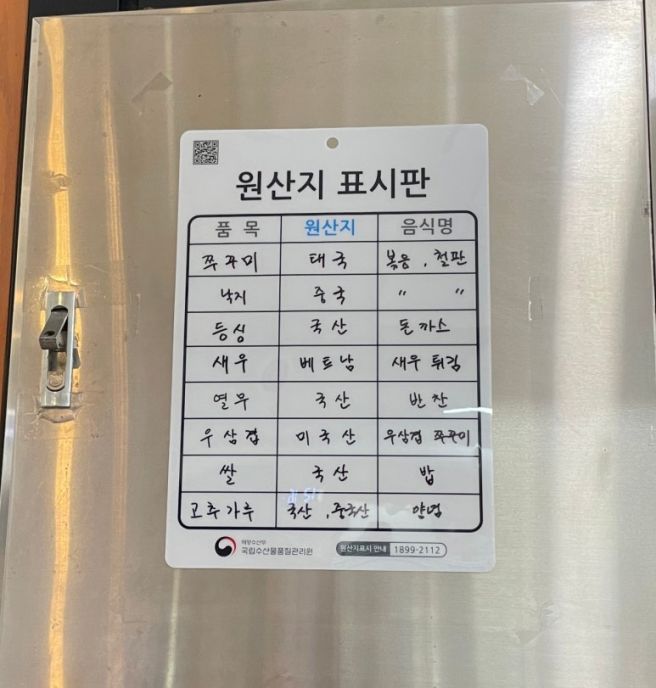 원산지 표시판
품 목 원산지 음식명
쭈꾸미 태국 볶음, 철판
낙지 중국 " "
등심 국산 돈까스
새우 베트남 새우 튀김
열무 국산 반찬
우삼겹 미국산 우삼겹 쭈꾸미
쌀 국산 밥
고추가루 국산, 중국산 양념
해양수산부
국립수산물품질관리원
원산지표시 안내 1899-2112